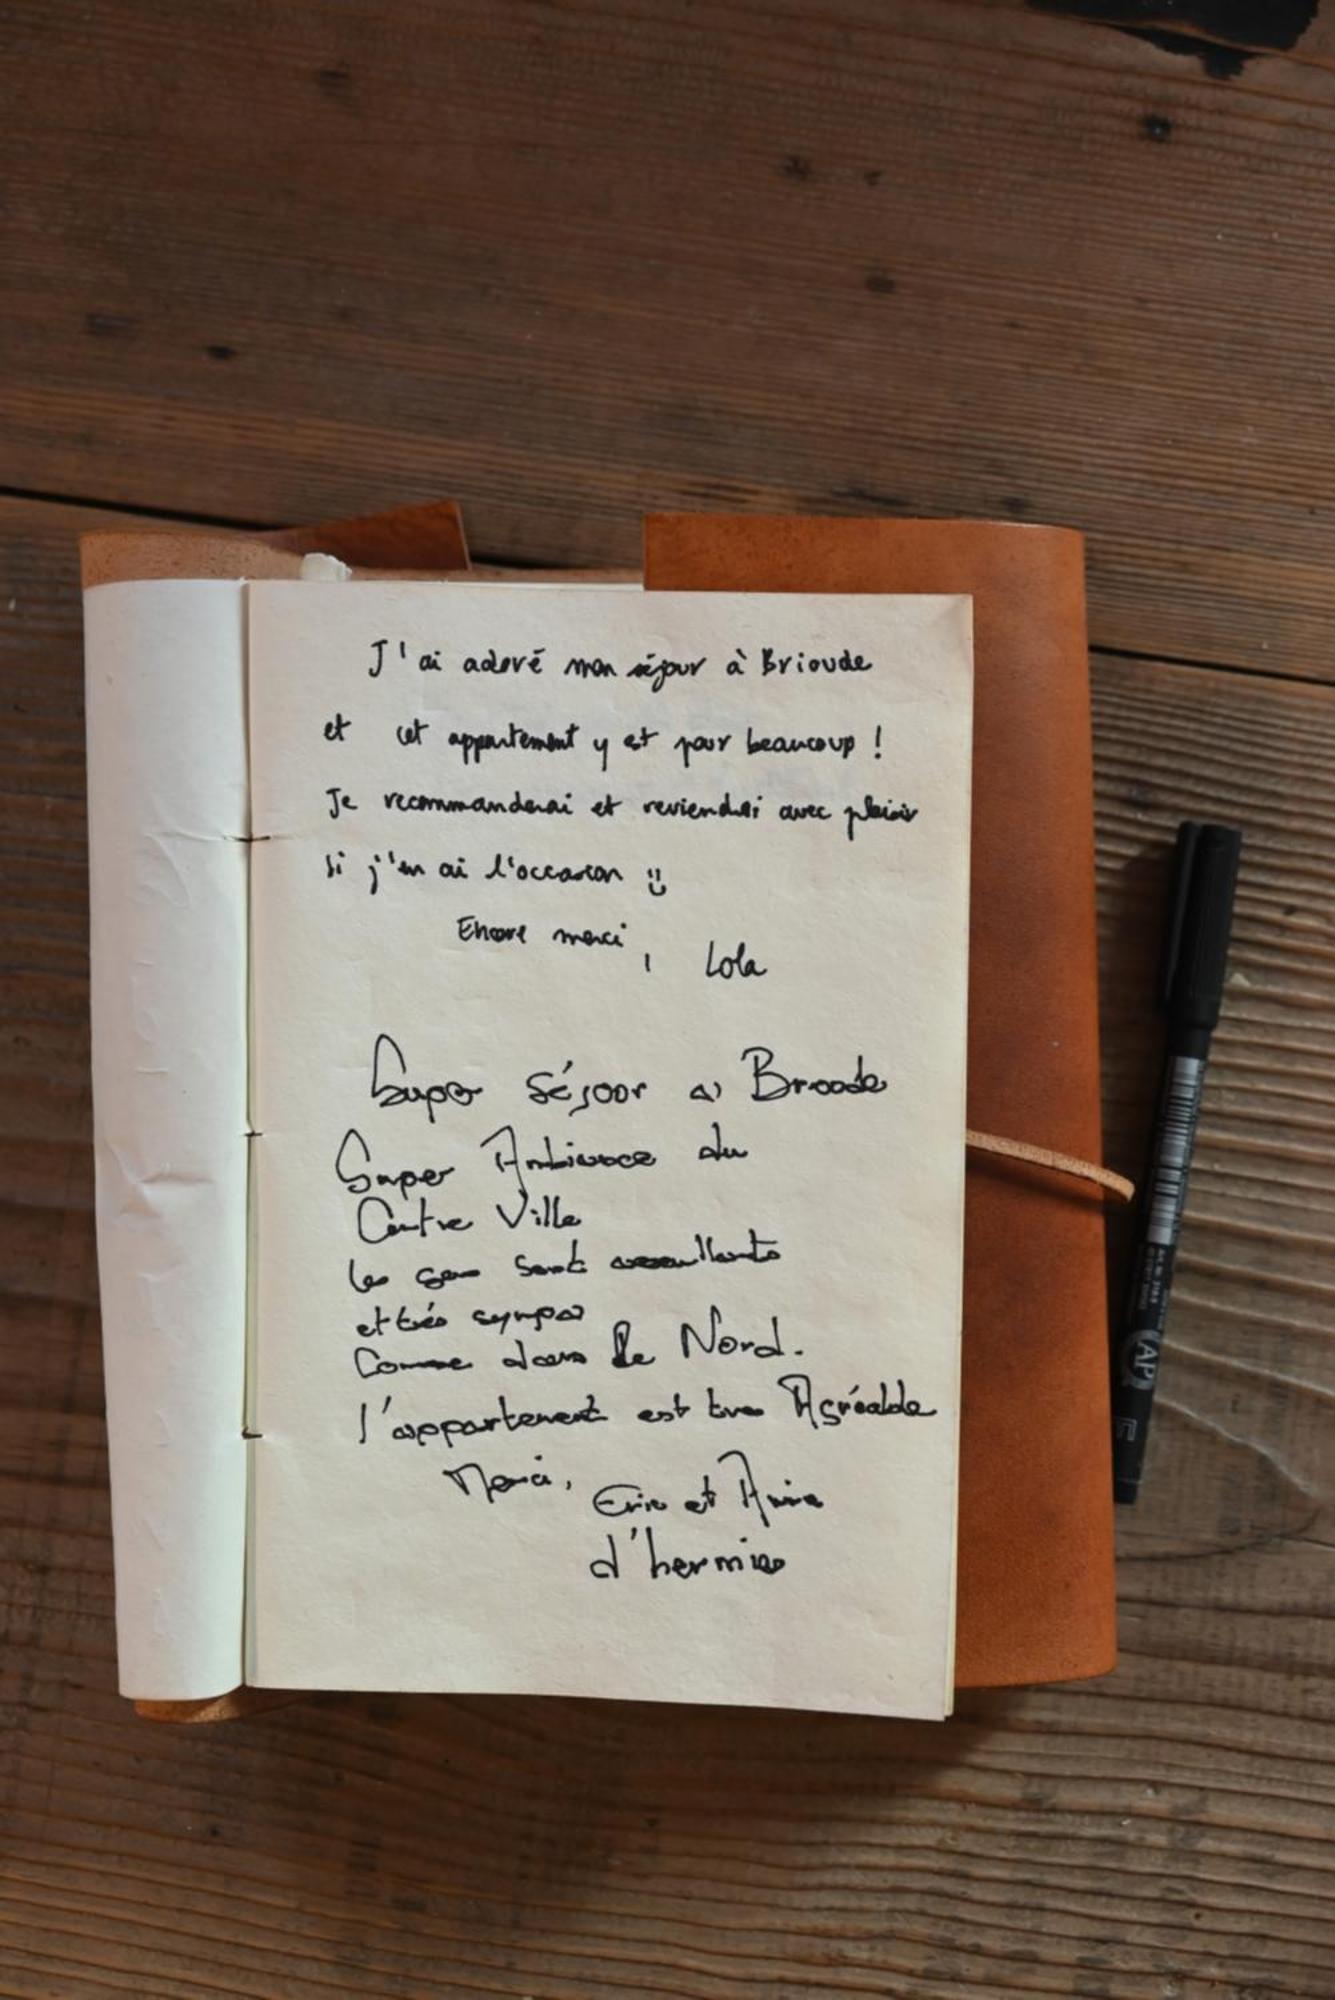 J'ai adoré mon séjour à Brioude
et cet appartement y est pour beaucoup !
Je recommanderai et reviendrai avec plaisir
si j'en ai l'occasion
Encore merci,
Lola
Super séjour a Brioude
Super Ambiance du
Centre Ville
les gens sont
et très sympas
Comme dans le Nord.
l'appartement est très Agréable
Merci,
Eric et
d'hermies
AP